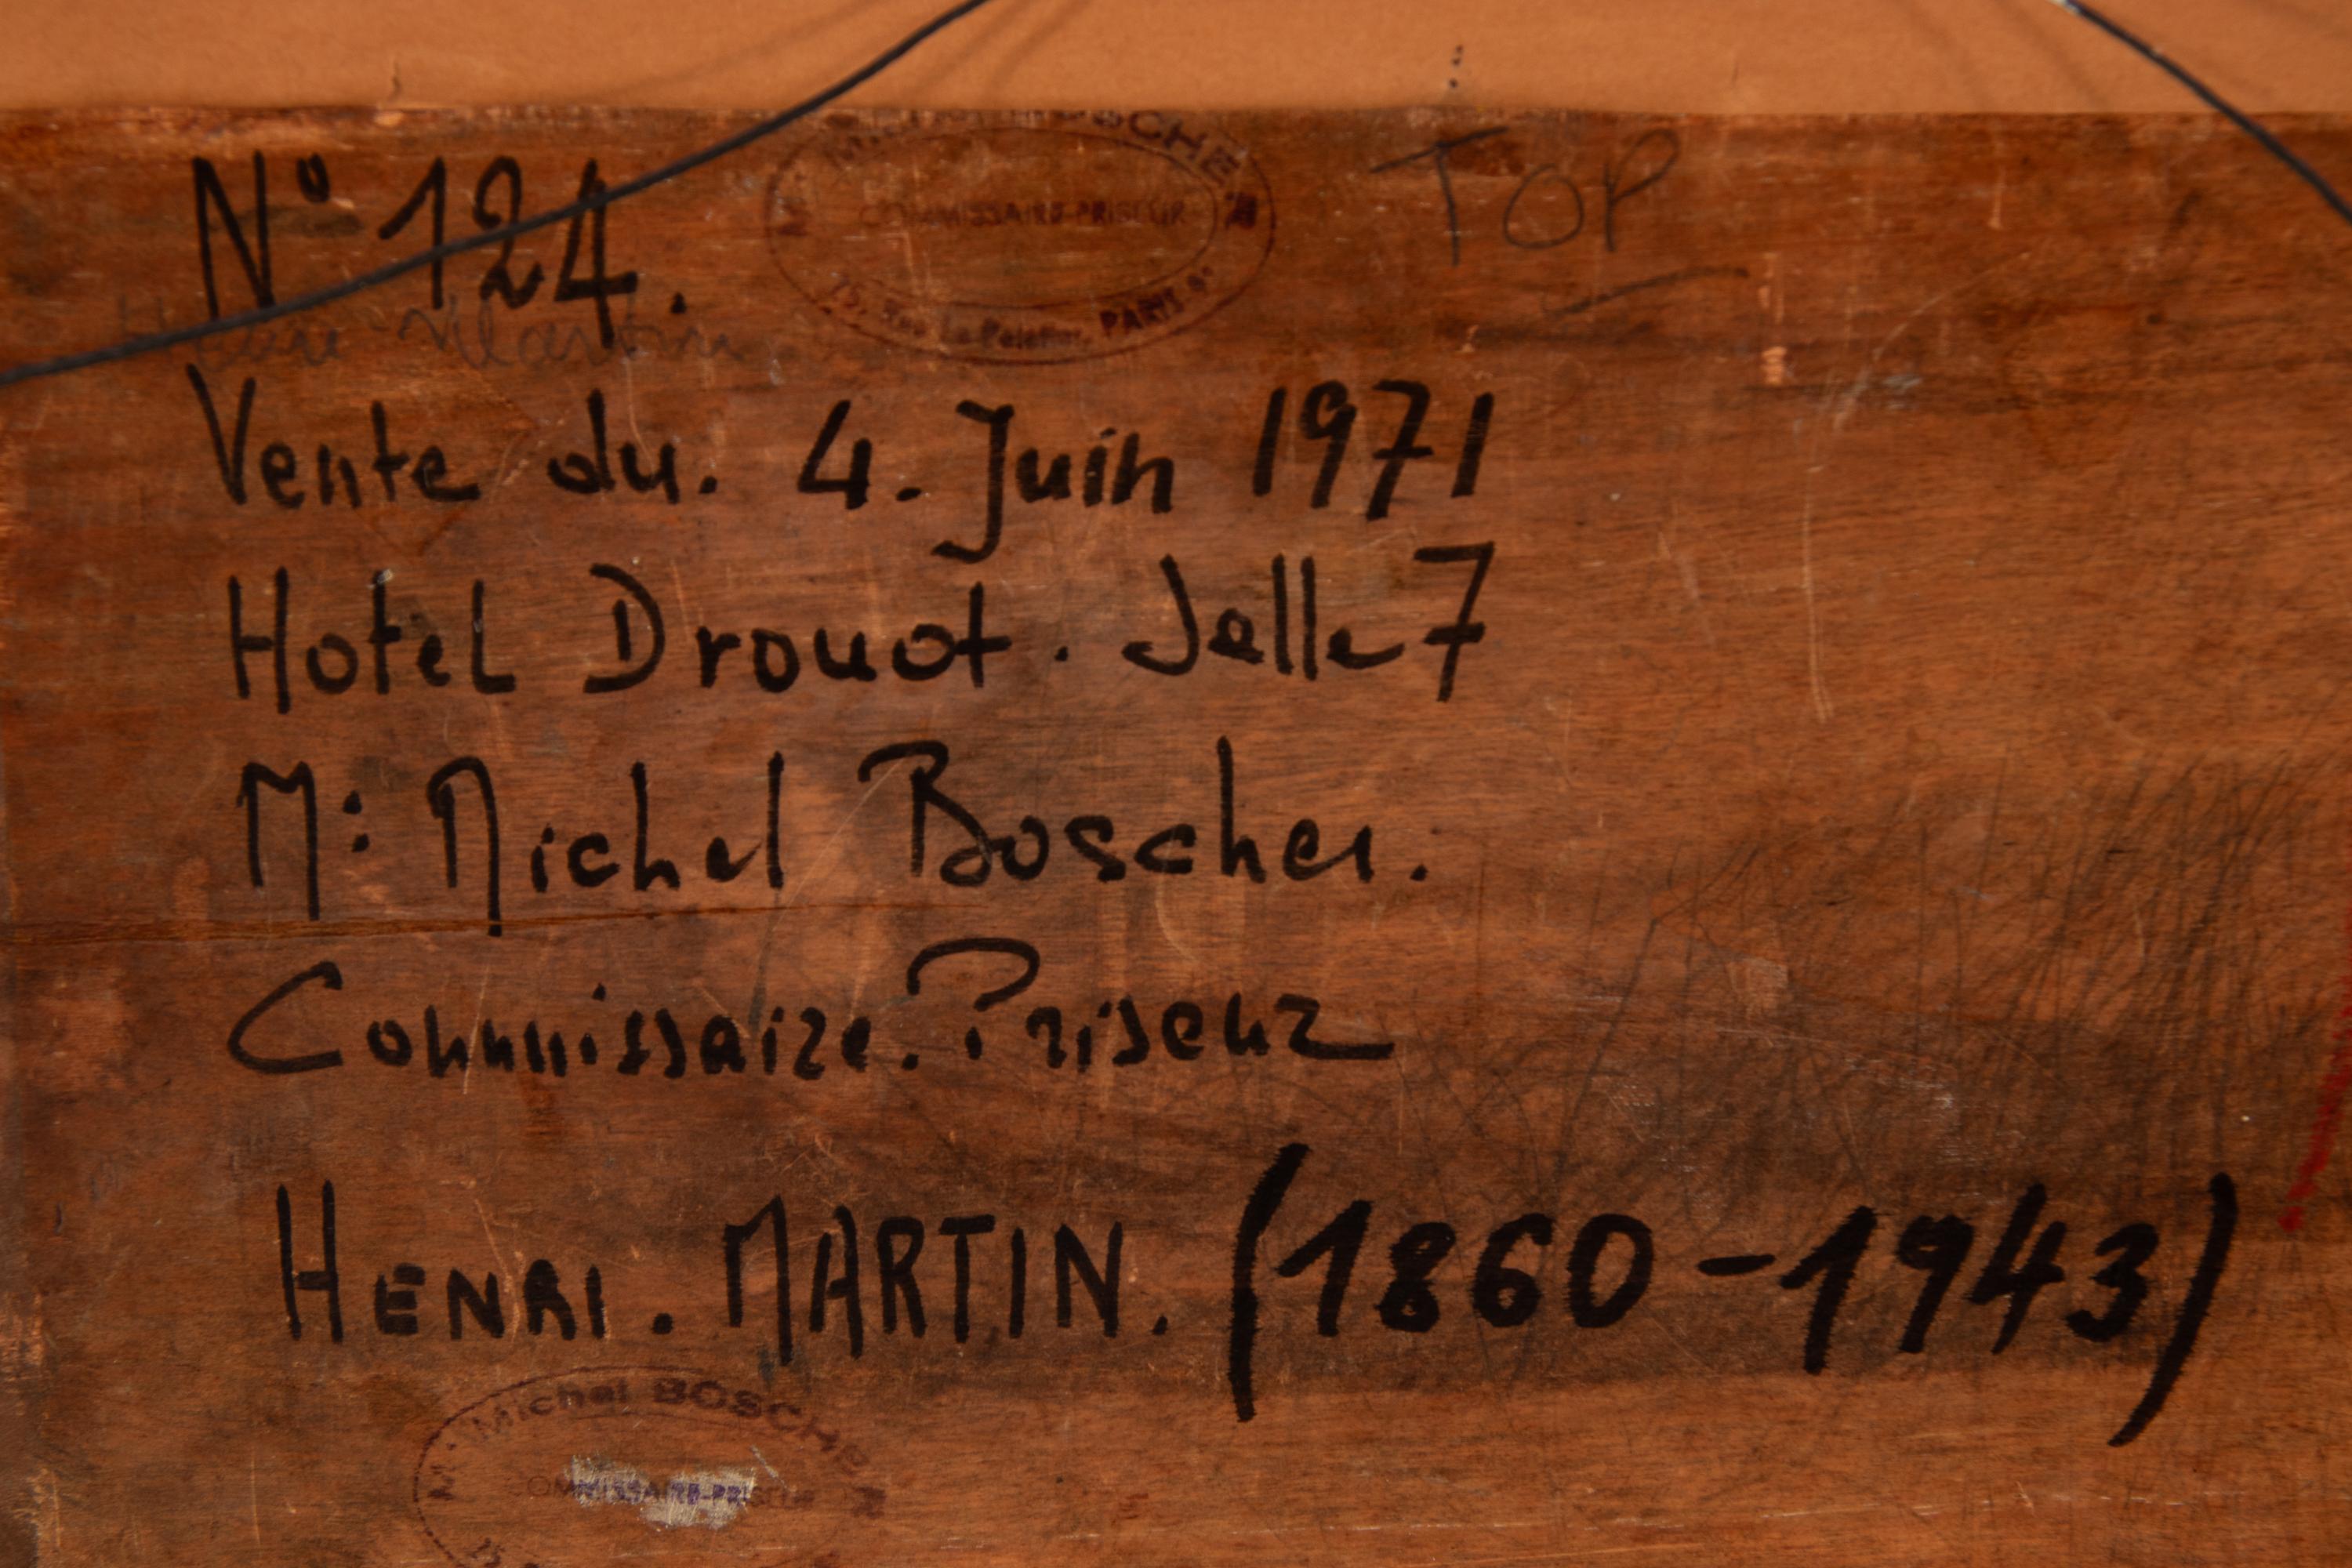 N° 124.
M. Michel BOSCHER
COMMISSAIRE-PRISEUR
15, Rue Le Peletier, PARIS 9e
TOP
Henri Martin
Vente du. 4. Juin 1971
Hotel Drouot. Salle 7
M: Michel Boscher.
Commissaire. Priseur
HENRI. MARTIN. (1860-1943)
M. Michel BOSCHER
COMMISSAIRE-PRISEUR